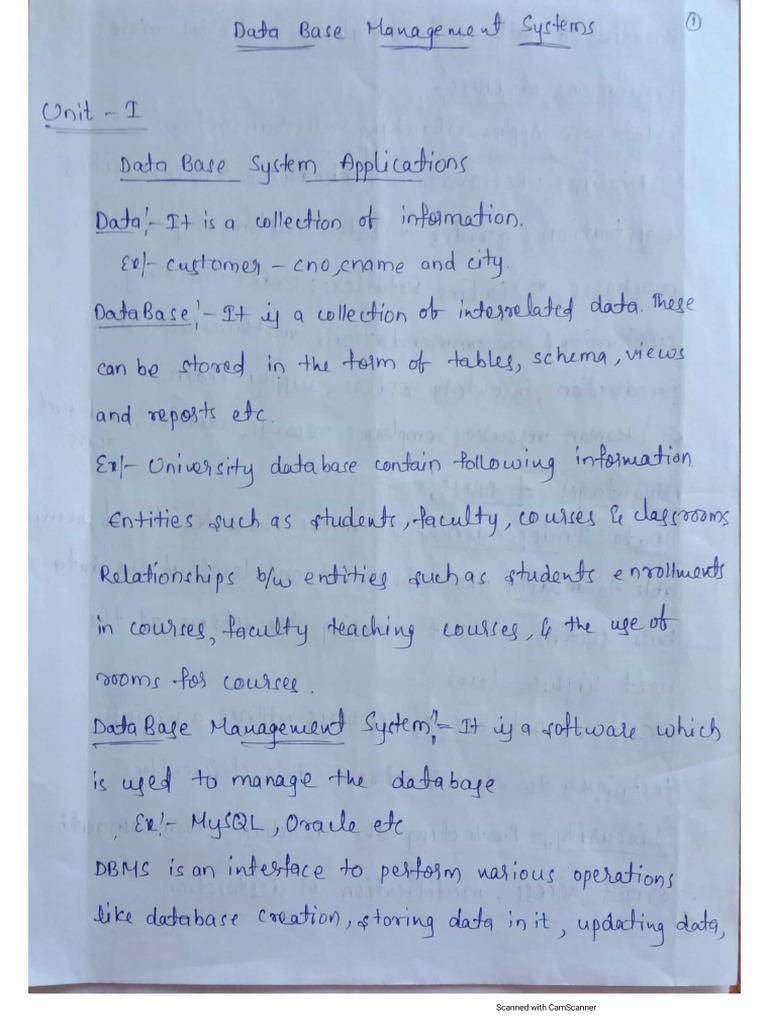 Data Base Management Systems ①
Unit - I
Data Base System Applications
Data:- It is a collection of information.
Ex:- customer - cno, cname and city.
DataBase:- It is a collection of interrelated data. These
can be stored in the form of tables, schema, views
and reports etc.
Ex:- University database contain following information
Entities such as students, faculty, courses & classrooms
Relationships b/w entities such as students enrollments
in courses, faculty teaching courses, & the use of
rooms for courses.
DataBase Management System:- It is a software which
is used to manage the database
Ex:- MySQL, Oracle etc
DBMS is an interface to perform various operations
like database creation, storing data in it, updating data,
Scanned with CamScanner